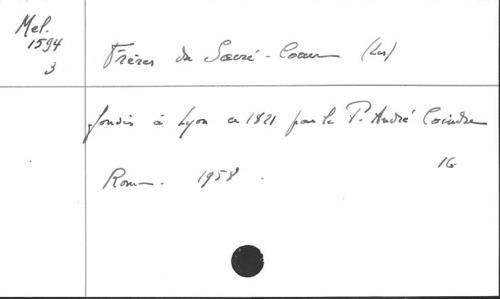 Mel.
1594
3
Frères du Sacré-Coeur (Les)
fondés à Lyon en 1821 par le P. André Coindre
16
Rome. 1958.